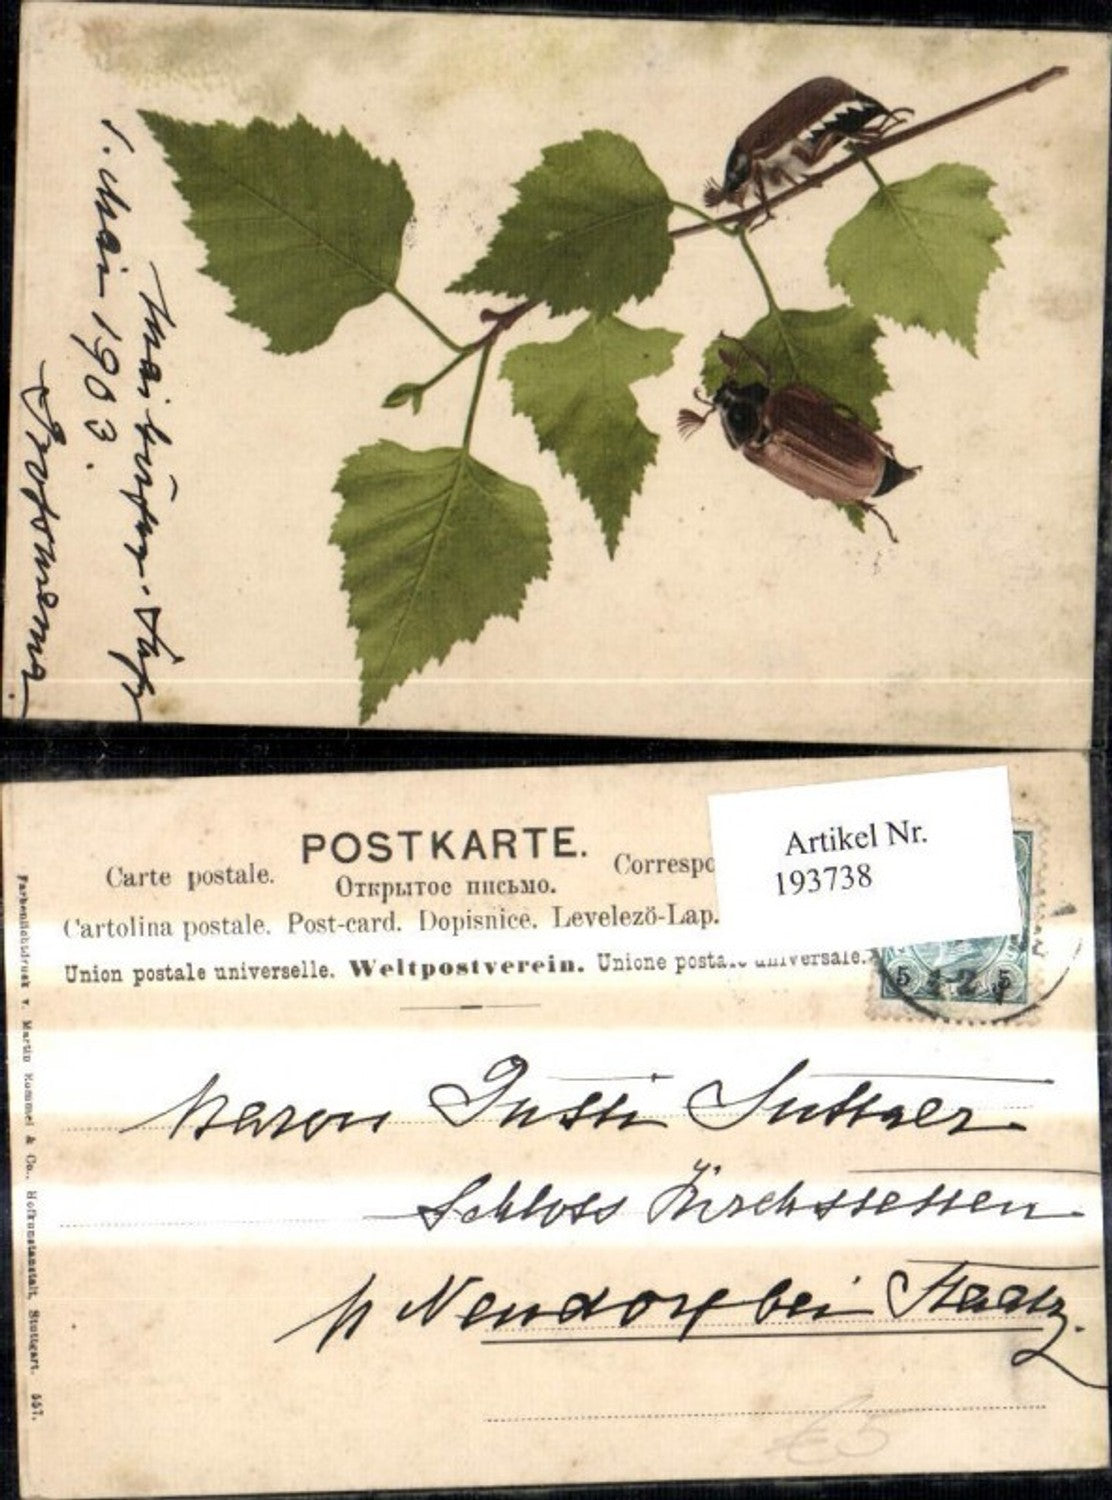 1. Mai 1903.
Maikäfer-Tag
Großmama
POSTKARTE.
Carte postale.
Открытое письмо.
Correspo
Cartolina postale. Post-card. Dopisnice. Levelező-Lap.
Union postale universelle. Weltpostverein. Unione postale universale.
Artikel Nr.
193738
5 5
Baron Gusti Suttner.
Schloss Kirchstetten.
p Neudorf bei Staatz.
Farbenlichtdruck v. Martin Rommel & Co., Hofkunstanstalt, Stuttgart. 557.
€5